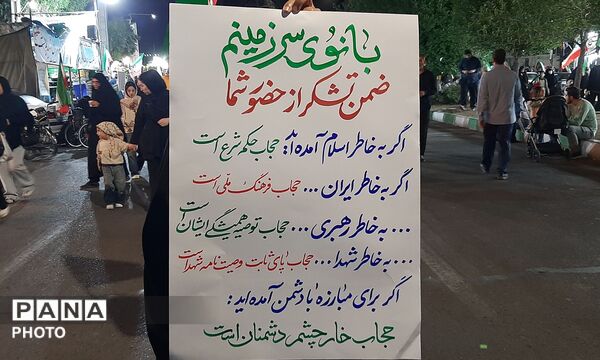 بانوی سرزمینم
ضمن تشکر از حضور شما
اگر به خاطر اسلام آمده اید: حجاب حکم شرع است
اگر به خاطر ایران ... حجاب فرهنگ ملّی است
... به خاطر رهبری ... حجاب توصیه همیشگی ایشان است
... به خاطر شهدا ... حجاب پای ثابت وصیت نامه شهداست
اگر برای مبارزه با دشمن آمده اید:
حجاب خار چشم دشمنان است
PANA
PHOTO